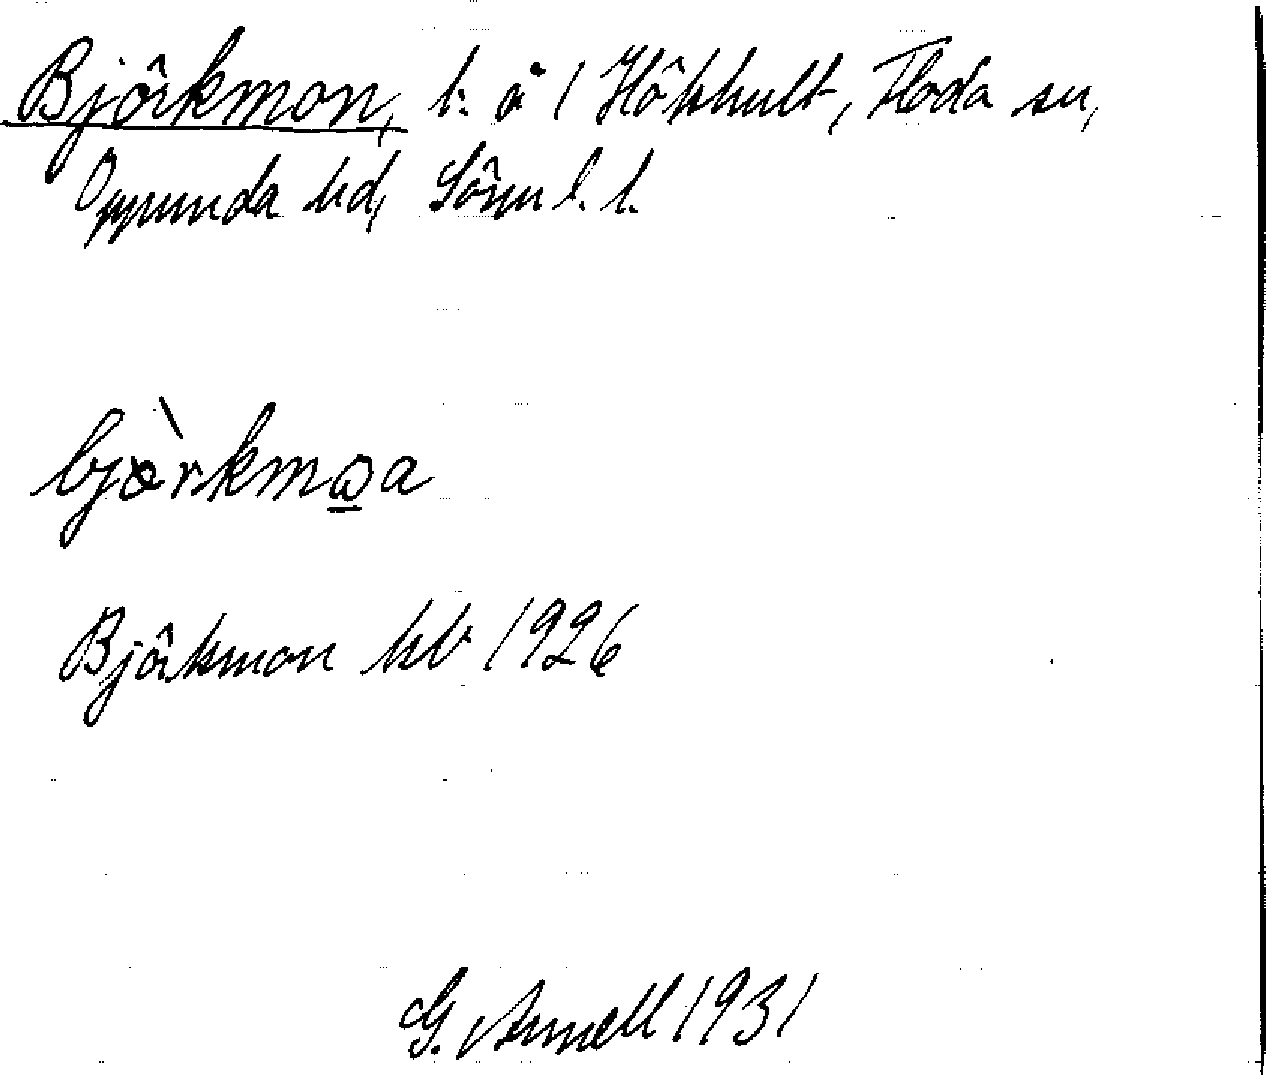 Björkmon, l. å 1 Hökhult, Floda sn,
Oppunda hd, Sörml. l.
bjòrkmωa
Björkmon kb 1926
G. Arnell 1931